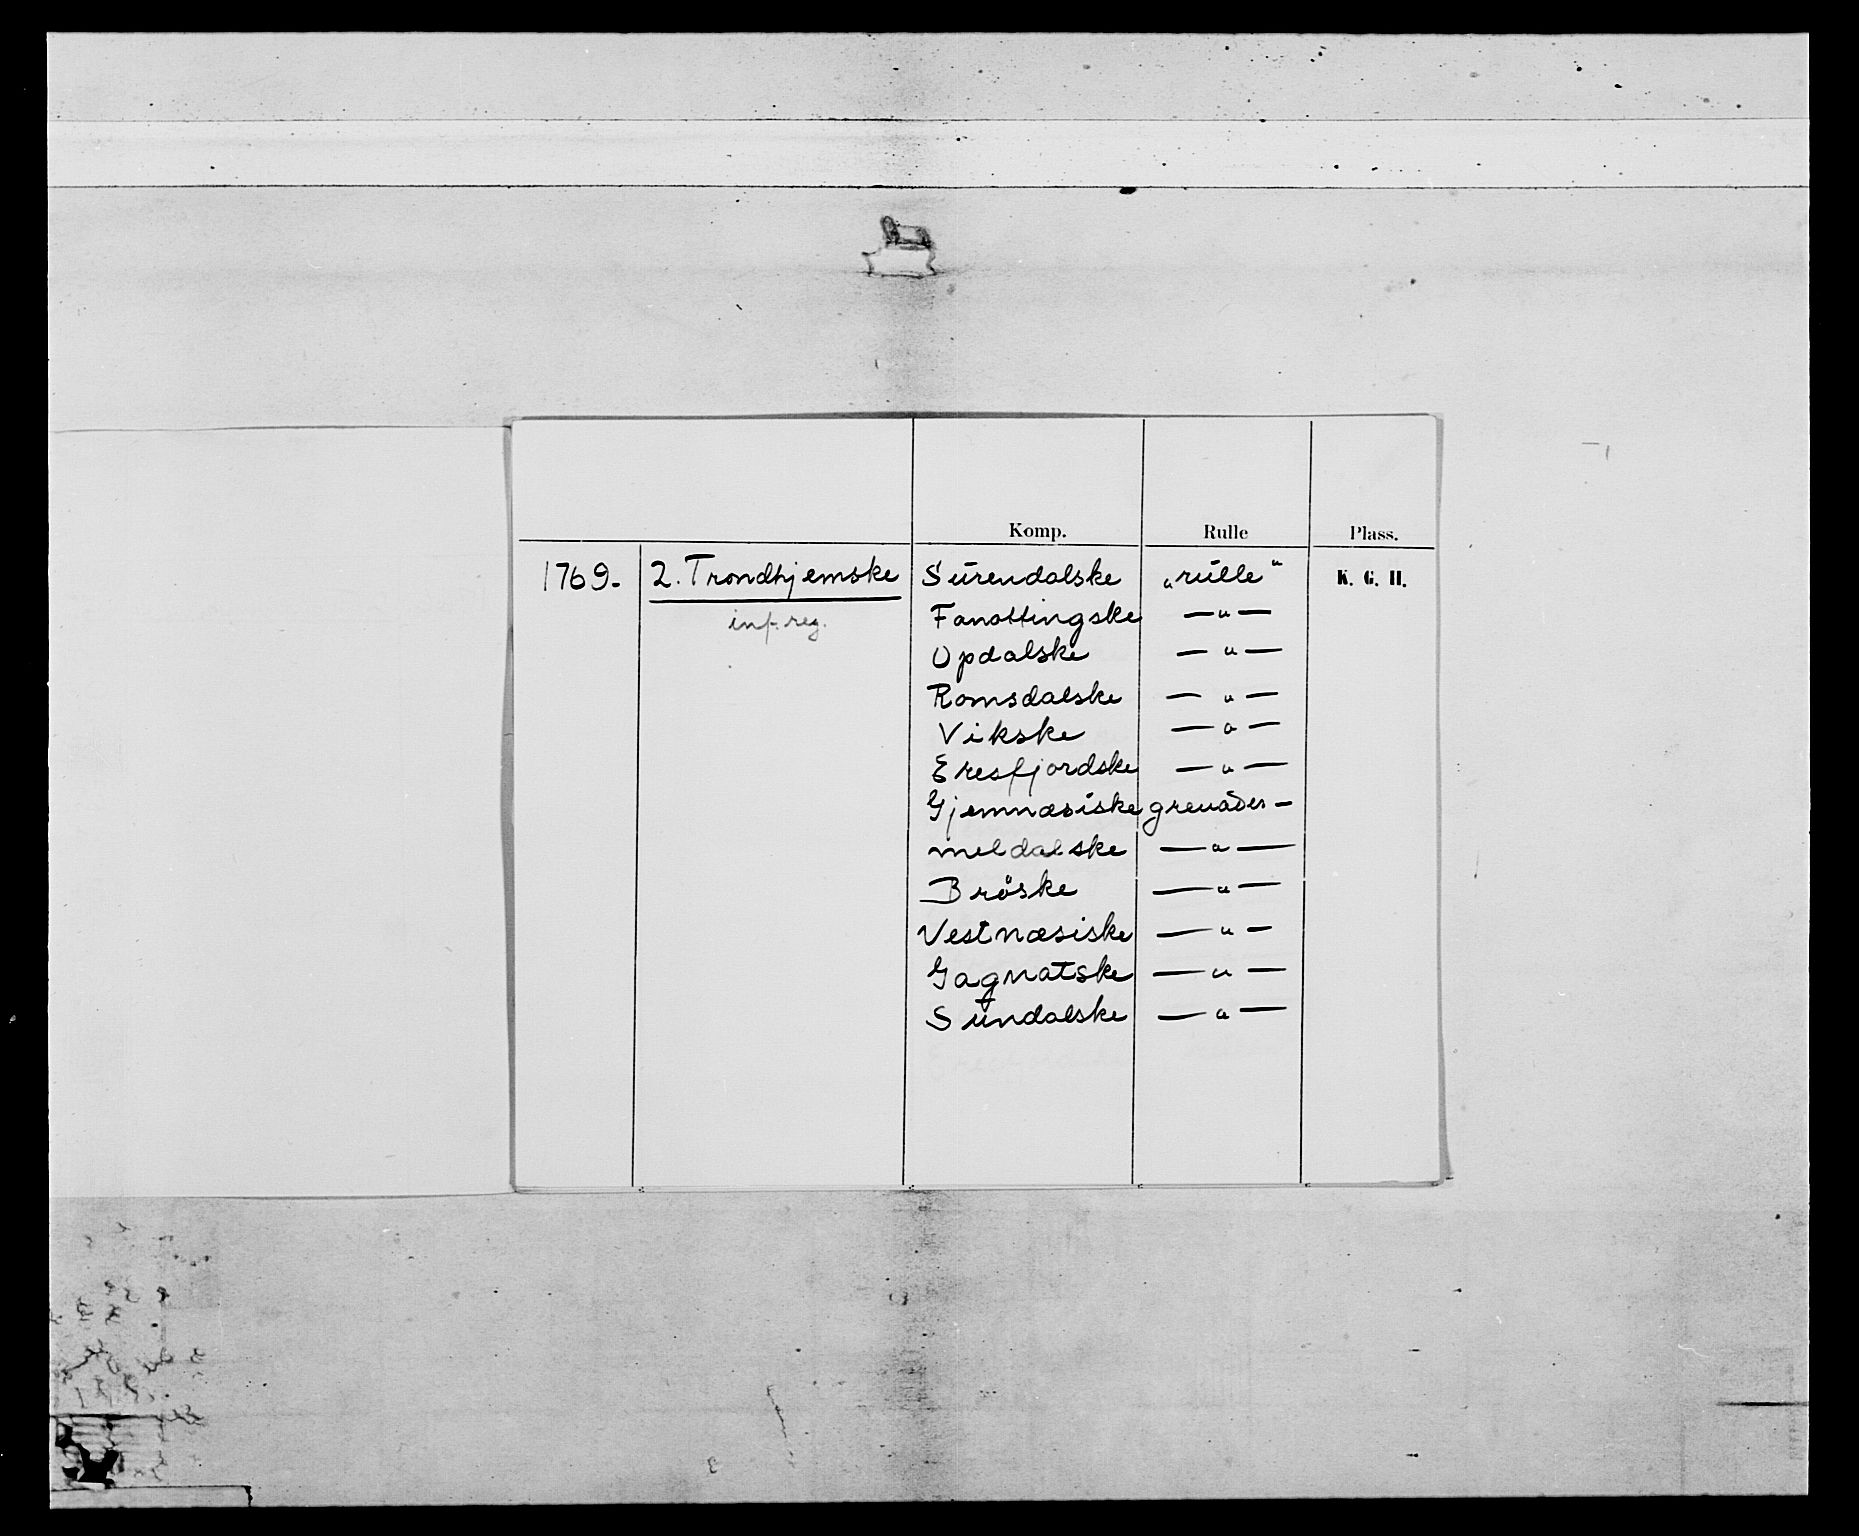 Komp. Rulle Plass.
1769. 2. Trondhjemske Sürendalske „rülle“ K. G. H.
inf. reg. Fanottingske — " —
Opdalske — " —
Romsdalske — " —
Vikske — " —
Eresfjordske — " —
Gjemnæsiske grenader —
meldalske — " —
Bröske — " —
Vestnæsiske — " —
Gagnatske — " —
Sündalske — " —